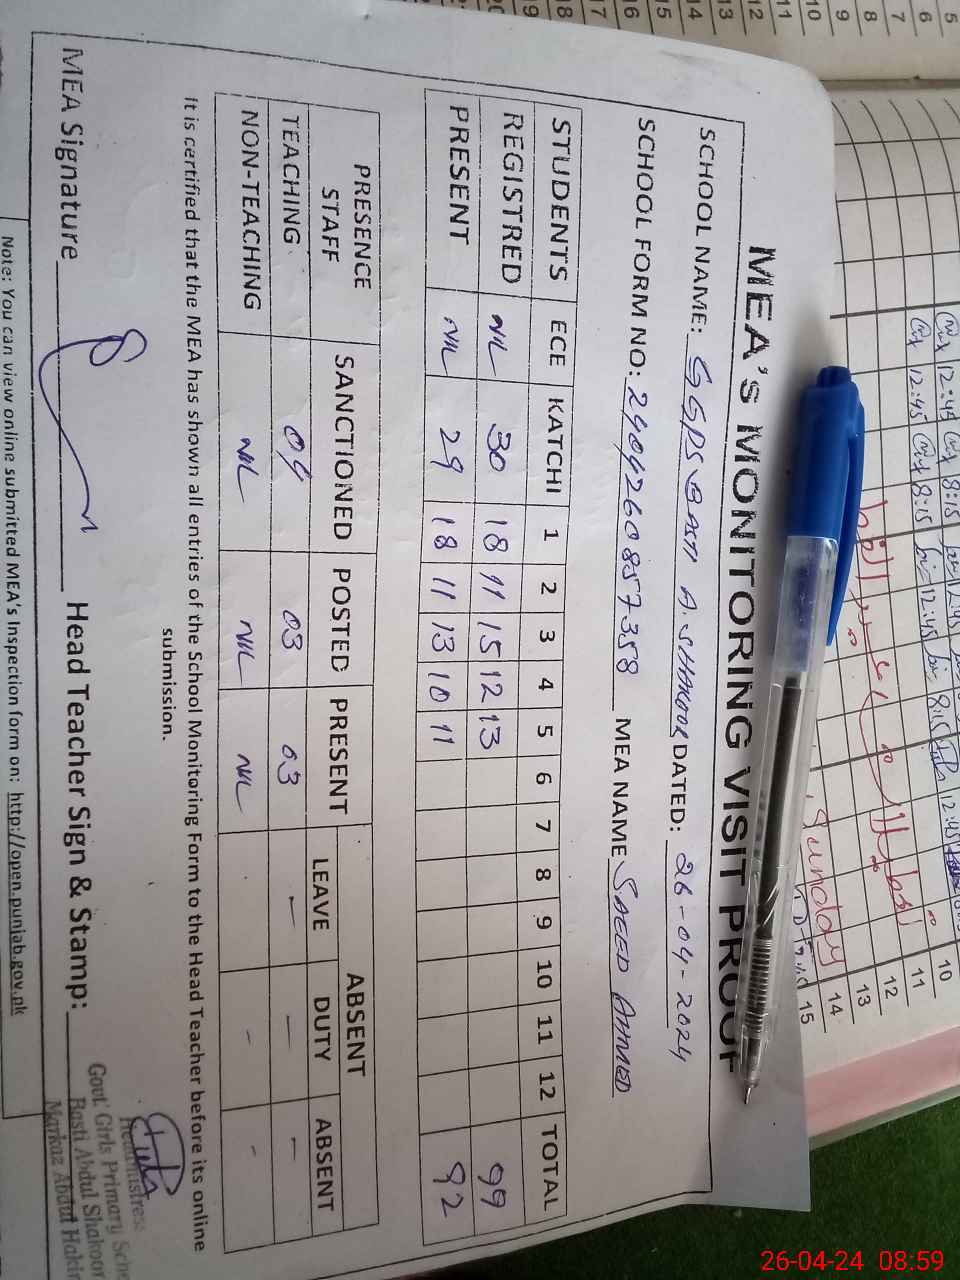 MEA's MONITORING VISIT PROOF
SCHOOL NAME: GGPS BASTI A. SHAKOOR DATED: 26-04-2024
SCHOOL FORM NO: 2404260857358 MEA NAME SAEED AHMED
STUDENTS ECE KATCHI 1 2 3 4 5 6 7 8 9 10 11 12 TOTAL
REGISTRED NIL 30 18 11 15 12 13 99
PRESENT NIL 29 18 11 13 10 11 92
PRESENCE STAFF SANCTIONED POSTED PRESENT ABSENT
LEAVE DUTY ABSENT
TEACHING 04 03 03 – – –
NON-TEACHING NIL NIL NIL - - -
It is certified that the MEA has shown all entries of the School Monitoring Form to the Head Teacher before its online
submission.
MEA Signature Head Teacher Sign & Stamp:
Headmistress
Govt. Girls Primary
Basti Abdul Shakoor
Markaz Abdul
Note: You can view online submitted MEA's Inspection form on: http://open.punjab.gov.pk
5
6
7
8
9
10
11
12
13
14
15
16
17
18
19
20
10
11
12
13
14
15
12:45 8:15 12:45
12:45 8:15 12:45 8:15
Sunday
26-04-24 08:59